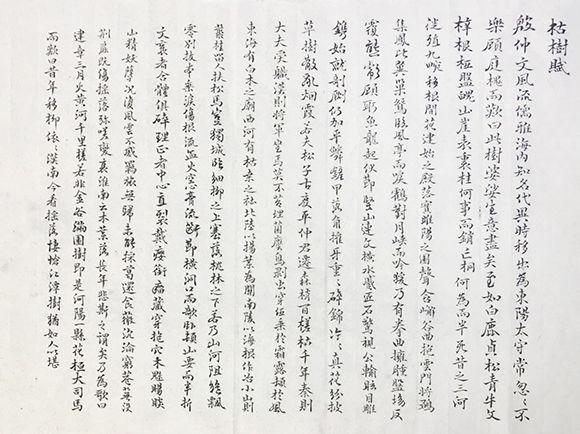 枯樹賦
殷仲文風流儒雅海内知名代異時移出為東陽太守常忽〻不
樂顧庭槐而歎曰此樹婆娑生意盡矣至如白鹿貞松青牛文
梓根柢盤魄山崖表裏桂何事而銷亡桐何為而半死昔之三河
徙殖九畹移根開花建始之殿落實睢陽之園聲含嶰谷曲抱雲門將鶵
集鳳比翼巢鴛臨風亭而唳鶴對月峽而吟猨乃有拳曲擁腫盤坳反
覆熊彪顧盼魚龍起伏節豎山連文橫水蹙匠石驚視公輸眩目雕
鐫始就剞劂仍加平鱗鏟甲落角摧牙重〻碎錦片〻真花紛披
草樹散亂烟霞若夫松子古度平仲君遷森梢百頃槎枯千年秦則
大夫受職漢則將軍坐焉莫不苔埋菌壓鳥剝虫穿低垂於霜露頓於風
東海有白木之廟西河有枯桑之社北陸以楊葉為關南陵以梅根作冶小山則
叢桂留人扶松馬豈獨城臨細柳之上塞落桃林之下若乃山河阻絕飄
零別拔本垂淚傷根流血火入空心膏流斷節橫洞口而敧臥頓山要而半折
文衺者合體俱碎理正者中心直裂戴癭銜瘤藏穿抱穴木魅睗睒
山精妖孽況復風雲不感羈旅無歸未能採葛還食薇沉淪窮巷蕪沒
荊扉既傷搖落弥嗟變衰淮南云木葉落長年悲斯之謂矣乃為歌曰
建章三月火黃河千里槎若非金谷滿園樹即是河陽一縣花桓大司馬
而歎曰昔年移柳依〻漢南今看搖落悽愴江潭樹猶如人以堪